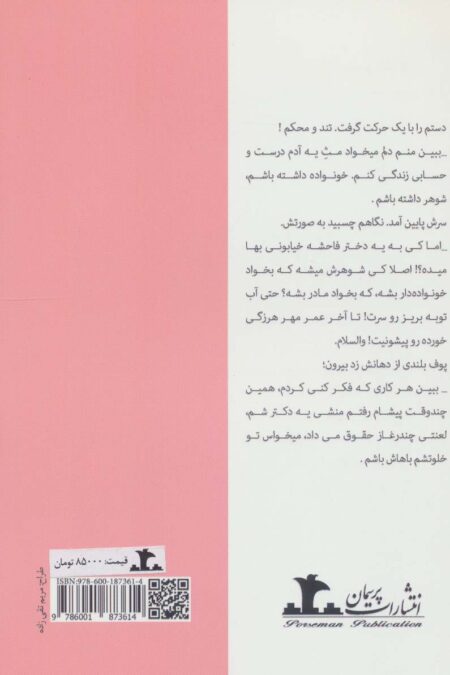 دستم را با یک حرکت گرفت. تند و محکم !
_ببین منم دلم میخواد مثِ یه آدم درست و
حسابی زندگی کنم. خونواده داشته باشم،
شوهر داشته باشم .
سرش پایین آمد. نگاهم چسبید به صورتش.
_اما کی به یه دختر فاحشه خیابونی بها
میده؟! اصلا کی شوهرش میشه که بخواد
خونواده‌دار بشه، که بخواد مادر بشه؟ حتی آب
توبه بریز رو سرت! تا آخر عمر مهر هرزگی
خورده رو پیشونیت! والسلام.
پوف بلندی از دهانش زد بیرون؛
_ ببین هر کاری که فکر کنی کردم، همین
چندوقت پیشام رفتم منشی یه دکتر شم،
لعنتی چندرغاز حقوق می داد، میخواس تو
خلوتشم باهاش باشم .
قیمت: ۸۵۰۰۰ تومان
ISBN:978-600-187361-4
9 786001 873614
طراح: مریم تقی زاده
انتشارات پرسمان
Porseman Publication